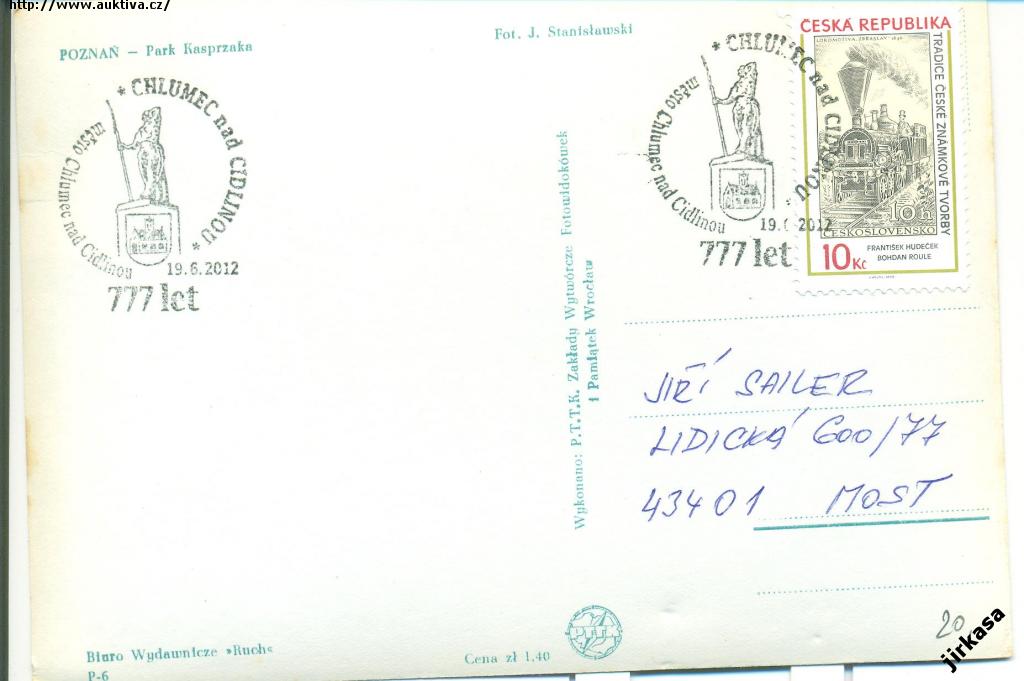 http://www.auktiva.cz/
POZNAŃ — Park Kasprzaka
Fot. J. Stanisławski
* CHLUMEC nad CIDLINOU *
město Chlumec nad Cidlinou
19.6.2012
777 let
* CHLUMEC nad CIDLINOU *
město Chlumec nad Cidlinou
19. 2012
777 let
ČESKÁ REPUBLIKA
TRADICE ČESKÉ ZNÁMKOVÉ TVORBY
10h
ČESKOSLOVENSKO
10 Kč
FRANTIŠEK HUDEČEK
BOHDAN ROULE
Wykonano: P.T.T.K. Zakłady Wytwórcze Fotowidokówek
i Pamiątek Wrocław
JIŘÍ SAILER
LIDICKÁ 600/77
43401 MOST
Biuro Wydawnicze »Ruch«
P-6
Cena zł 1,40
PTTK
20
jirkasa